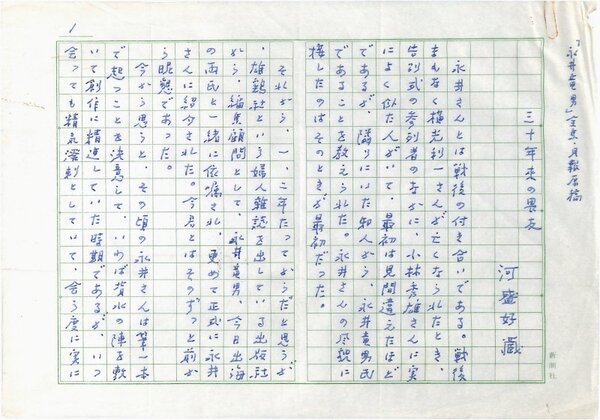 「永井龍男」全集・月報原稿
三十年来の畏友
河盛好蔵
永井さんとは戦後の付き合いである。戦後
まもなく横光利一さんが亡くなられたとき、
告別式の参列者のなかに、小林秀雄さんに実
によく似た人がいて、最初は見間違えたほど
であるが、隣りにいた知人から、永井龍男氏
であることを教えられた。永井さんの風貌に
接したのはそのときが最初だった。
それから一、二年たってからだと思うが
、雄鶏社という婦人雑誌を出している出版社
から、編集顧問として、永井龍男、今日出海
の両氏と一緒に依嘱され、更めて正式に永井
さんに紹介された。今君とはそのずっと前から
眤懇であった。
今から思うと、その頃の永井さんは筆一本
で起つことを決意して、いわば背水の陣を敷
いて創作に精進していた時期であるが、いつ
会っても精気溌剌としていて、会う度に実に
1
新潮社